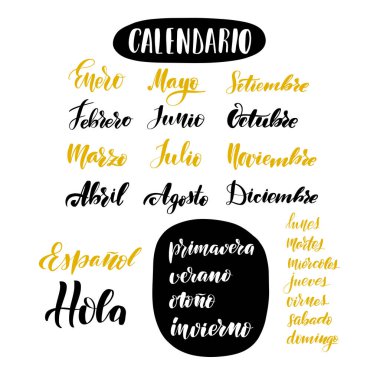 CALENDARIO
Enero Mayo Setiembre
Febrero Junio Octubre
Marzo Julio Noviembre
Abril Agosto Diciembre
Español
Hola
primavera
verano
otoño
invierno
lunes
martes
miércoles
jueves
virnes
sabado
domingo